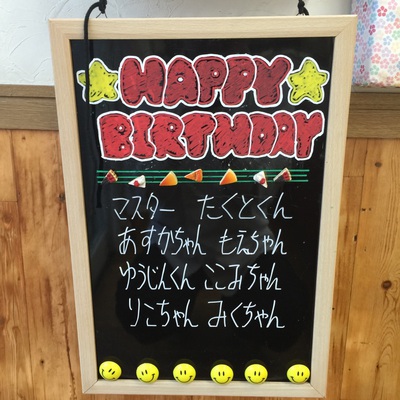 HAPPY
BIRTHDAY
マスター たくとくん
あすかちゃん もえちゃん
ゆうじんくん ここみちゃん
りこちゃん みくちゃん